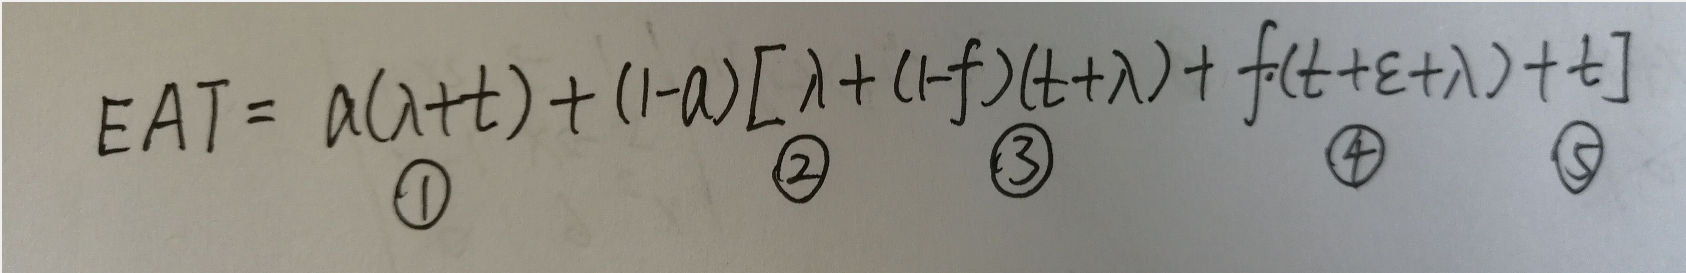 EAT = a(λ+t) + (1-a)[λ+(1-f)(t+λ)+f·(t+ε+λ)+t]
① ② ③ ④ ⑤